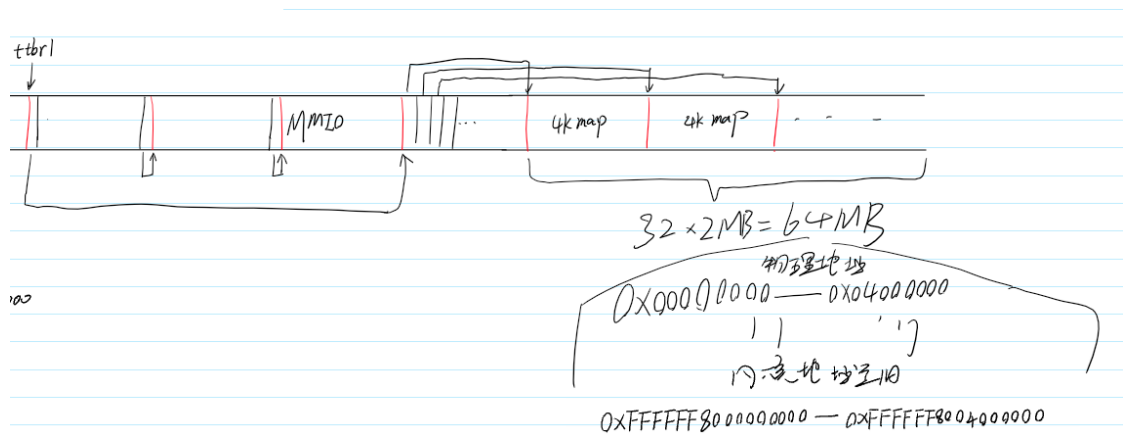 ttbr1
MMIO
...
4k map
4k map
- - -
32×2MB=64MB
物理地址
00
0X00000000 — 0X04000000
内态地址空间
0XFFFFFF8000000000 — 0XFFFFFF8004000000